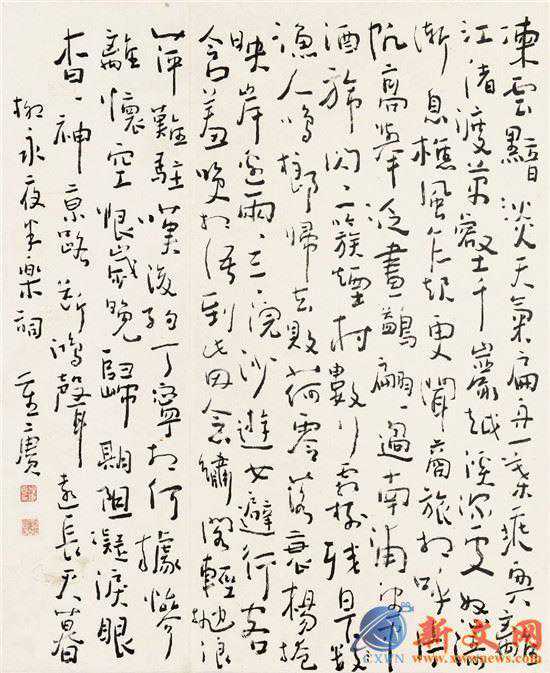 凍雲黯淡天氣扁舟一葉乘興離
江渚渡萬壑千巖越溪深處怒濤
漸息樵風乍起更聞商旅相呼片
帆高舉泛畫鷁翩〻過南浦望中
酒旆閃〻一簇煙村數行霜樹殘日下
漁人鳴榔歸去敗荷零落衰楊掩
映岸邊兩〻三〻浣沙遊女避行客
含羞笑相語到此因念繡閣輕拋浪
萍難駐嘆後約丁寧竟何據慘
離懷空恨歲晚歸期阻凝淚眼
杳〻神京路斷鴻聲遠長天暮
柳永夜半樂詞
新文网
CXWN www.xwwnews.com